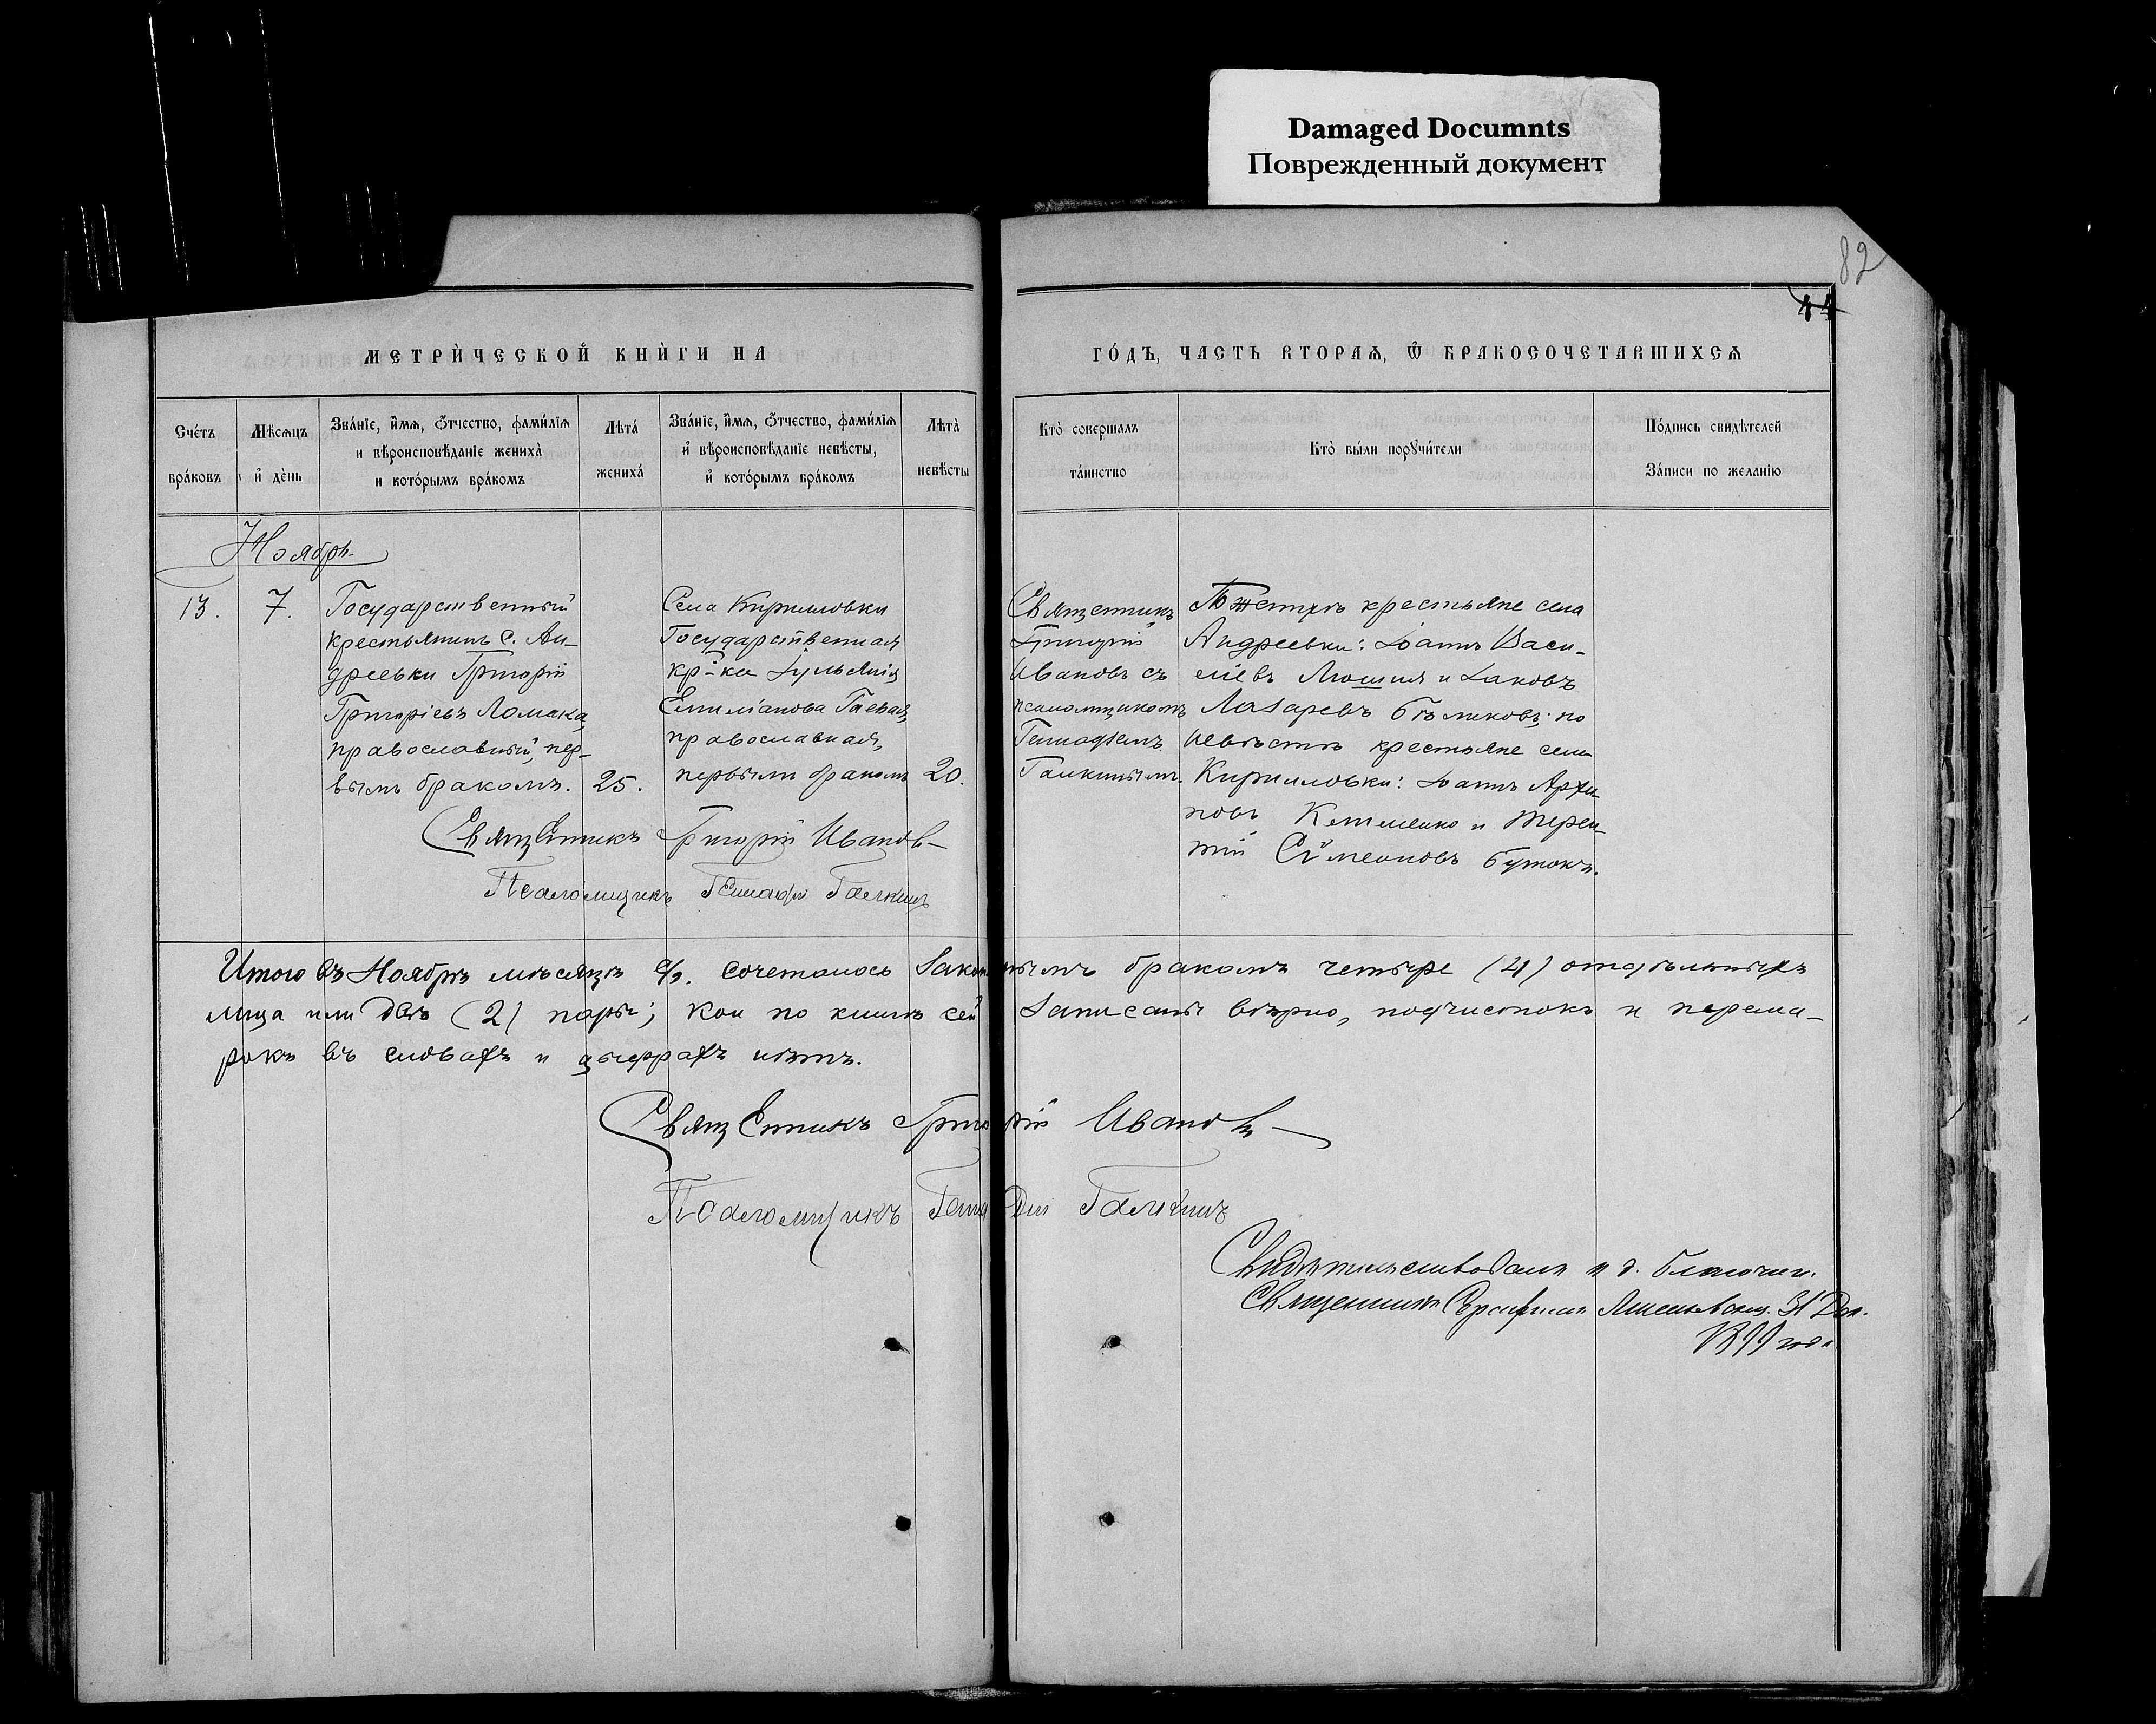 Damaged Documnts
Поврежденный документ
82
44
МЕТРИ́ЧЕСКОЙ КНИ́ГИ НА
ГО́ДЪ, ЧАСТЬ ВТОРАѦ, Ѿ БРАКОСОЧЕТАВШИХСѦ
Сче́тъ бра́ковъ
Мѣсѧцъ и де́нь
Зва́нїе, и́мѧ, ѻ҆́тчество, фами́лїѧ
и вѣроисповѣ́данїе жениха̀
и кото́рымъ бра́комъ
Лѣта́ жениха́
Зва́нїе, и́мѧ, ѻ҆́тчество, фами́лїѧ
и вѣроисповѣ́данїе невѣ́сты,
и кото́рымъ бра́комъ
Лѣта̀ невѣ́сты
Кто̀ совершалъ та́инство
Кто̀ бы́ли порꙋчи́тели
По́дпись свидѣ́телей
За́писи по жела́нїю
Ноябрь
13.
7.
Государственный
крестьянинъ с. Ан-
дреевки Григорій
Григоріевъ Ломака,
православный, пер-
вымъ бракомъ.
25.
Села Кирилловки
Государственная
кр-ка Іуліянія
Емиліанова
православная,
первымъ бракомъ
20.
Священникъ
Григорій
Ивановъ съ
псаломщикомъ
Геннадіемъ
Галкинымъ.
По женихѣ крестьяне села
Андреевки: Іоаннъ Васи-
ліевъ и Іаковъ
Лазаревъ Бѣликовъ; по
невѣстѣ крестьяне села
Кирилловки: Іоаннъ Архи-
повъ и Терен-
тій Сѵмеоновъ Бутокъ.
Священникъ Григорій Ивановъ
Псаломщикъ Геннадій Галкинъ
Итого въ Ноябрѣ мѣсяцѣ с/г. сочеталось законнымъ бракомъ четыре (4) отдѣльныхъ
лица или двѣ (2) пары; кои по книгѣ сей записаны вѣрно, подчистокъ и перема-
рокъ въ словахъ и цыфрахъ нѣтъ.
Священникъ Григорій Ивановъ
Псаломщикъ Геннадій Галкинъ
Свидѣтельствовалъ и д. благочин.
Священникъ 31 Дек.
года